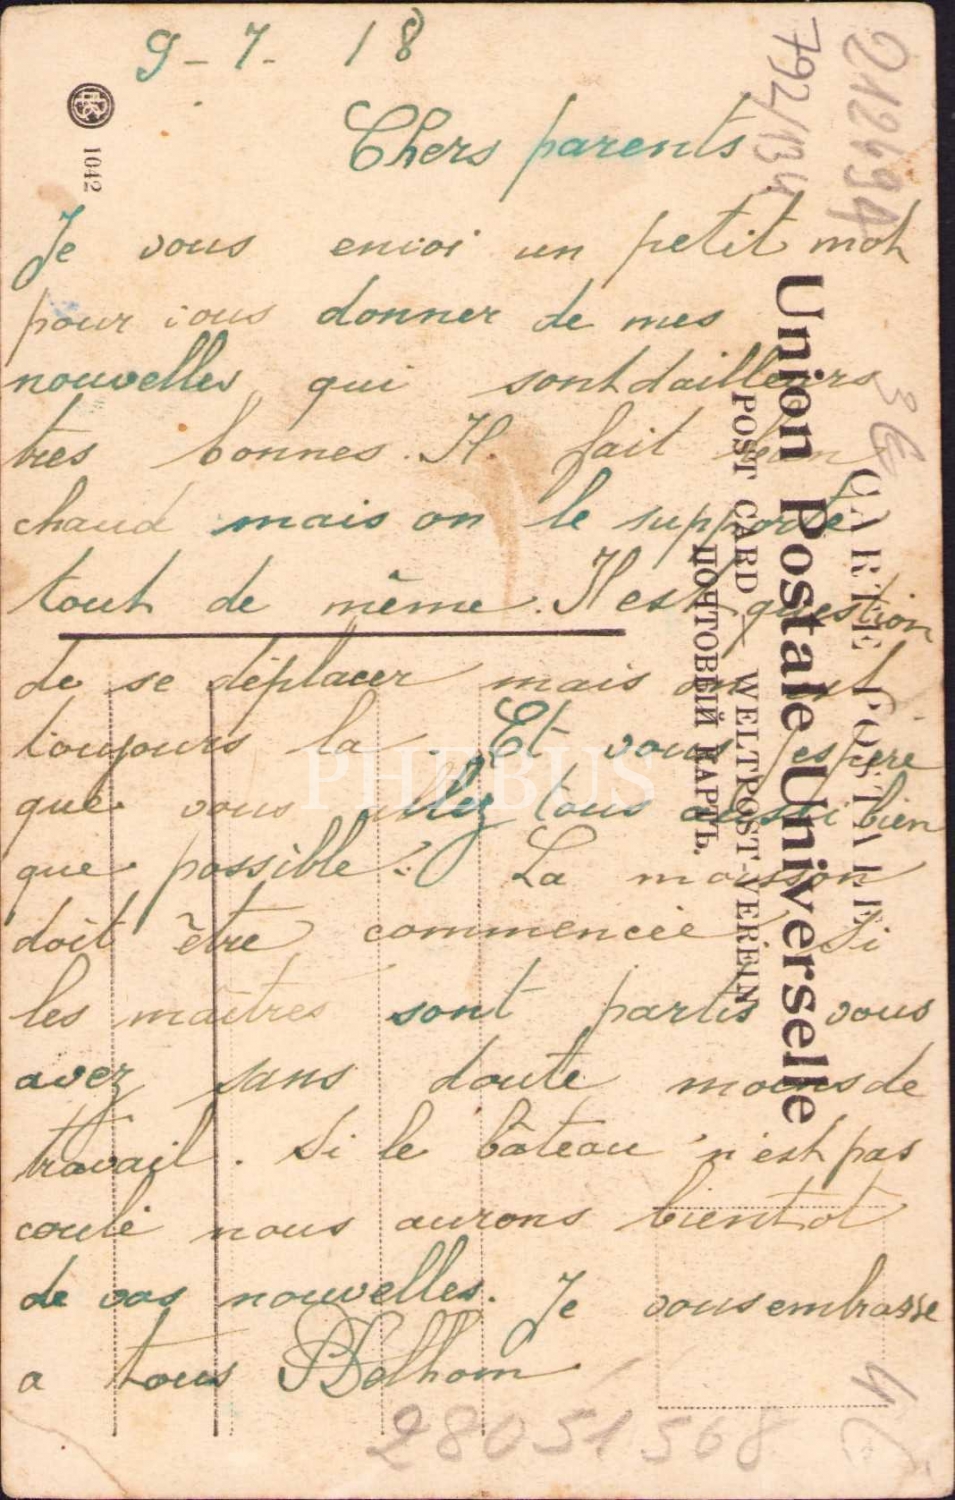 9-7-18
Chers parents
Je vous envoi un petit mot
pour vous donner de mes
nouvelles qui sont dailleurs
tres bonnes. Il fait bien
chaud mais on le supporte
tout de même. Il est question
de se déplacer mais on est
toujours la. Et vous j'espere
que vous allez tous aussi bien
que possible. La moisson
doit être commencée. Si
les maîtres sont partis vous
avez sans doute moins de
travail. Si le bâteau n'est pas
coulé nous aurons bientot
de vos nouvelles. Je vous embrasse
a tous
1042
CARTE POSTALE
Union Postale Universelle
POST CARD — WELTPOST-VEREIN
ПОЧТОВЫЙ КАРТЪ.
792/134
3 €
28051568
PHEBUS